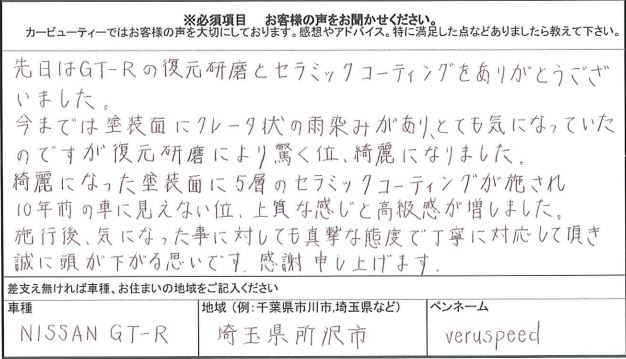 ※必須項目　お客様の声をお聞かせください。
カービューティーではお客様の声を大切にしております。感想やアドバイス。特に満足した点などありましたら教えて下さい。
先日はGT-Rの復元研磨とセラミックコーティングをありがとうござ
いました。
今までは塗装面にクレータ状の雨染みがあり、とても気になっていた
のですが復元研磨により驚く位、綺麗になりました。
綺麗になった塗装面に5層のセラミックコーティングが施され
10年前の車に見えない位、上質な感じと高級感が増しました。
施行後、気になった事に対しても真摯な態度で丁寧に対応して頂き
誠に頭が下がる思いです。感謝申し上げます。
差支え無ければ車種、お住まいの地域をご記入ください
車種　地域（例：千葉県市川市,埼玉県など）　ペンネーム
NISSAN GT-R　埼玉県所沢市　veruspeed